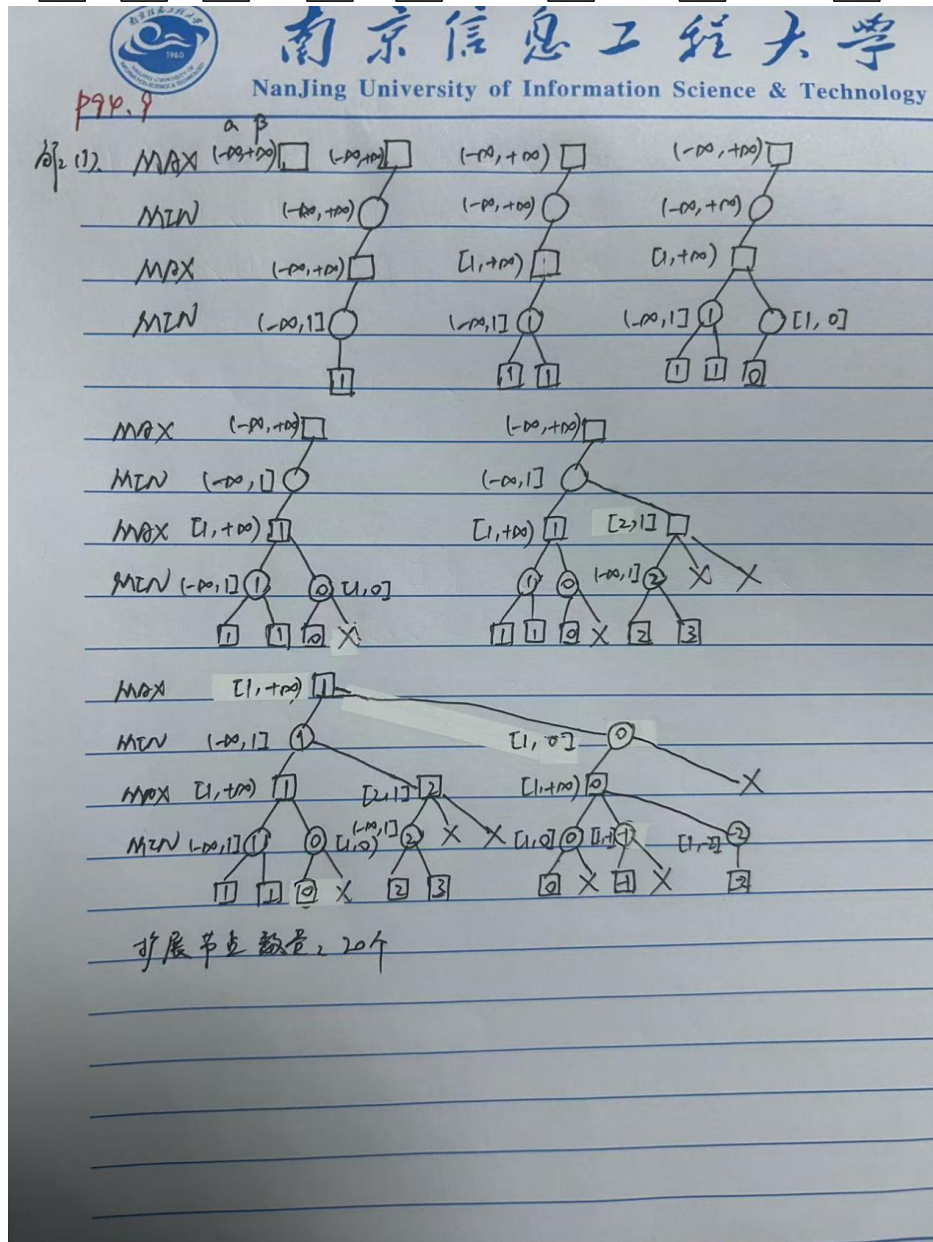 南京信息工程大学
NanJing University of Information Science & Technology
1960
P94.9
α β
解:(1). MAX (-∞,+∞) (-∞,+∞) (-∞,+∞) (-∞,+∞)
MIN (-∞,+∞) (-∞,+∞) (-∞,+∞)
MAX (-∞,+∞) [1,+∞) 1 [1,+∞)
MIN (-∞,1] (-∞,1] 1 (-∞,1] 1 [1,0]
1 1 1 1 1 0
MAX (-∞,+∞) (-∞,+∞)
MIN (-∞,1] (-∞,1]
MAX [1,+∞) 1 [1,+∞) 1 [2,1]
MIN (-∞,1] 1 0 [1,0] 1 0 (-∞,1] 2 X X
1 1 0 X 1 1 0 X 2 3
MAX [1,+∞) 1
MIN (-∞,1] 1 [1,0] 0
MAX [1,+∞) 1 [2,1] 2 [1,+∞) 0 X
MIN (-∞,1] 1 0 [1,0) (-∞,1] 2 X X [1,0] 0 [1,-1] -1 [1,-2] -2
1 1 0 X 2 3 0 X -1 X -2
扩展节点数量:20个